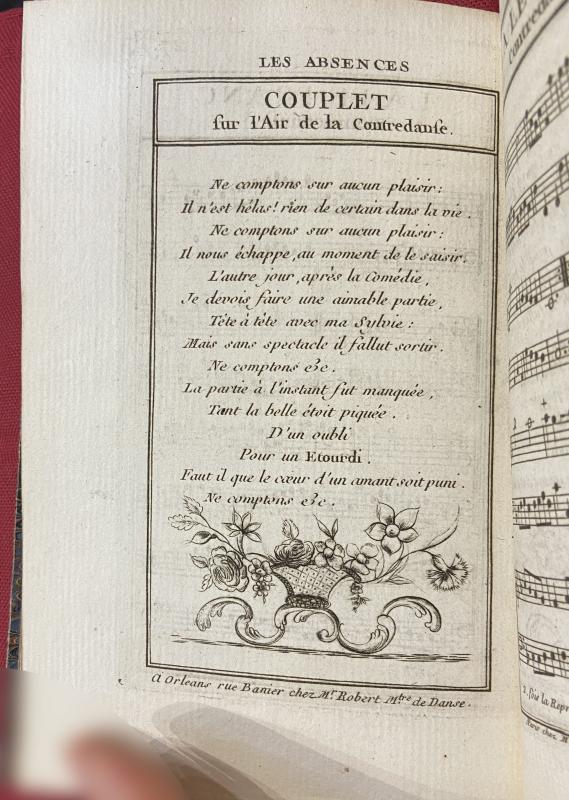 LES ABSENCES
COUPLET
sur l'Air de la Contredanse.
Ne comptons sur aucun plaisir :
Il n'est hélas ! rien de certain dans la vie .
Ne comptons sur aucun plaisir :
Il nous échappe, au moment de le saisir.
L'autre jour, après la Comédie,
Je devois faire une aimable partie,
Tête à tête avec ma Sylvie :
Mais sans spectacle il fallut sortir .
Ne comptons &c .
La partie à l'instant fut manquée,
Tant la belle étoit piquée .
D'un oubli
Pour un Etourdi .
Faut il que le cœur d'un amant soit puni .
Ne comptons &c .
A Orleans rue Banier chez Mr. Robert Mtre de Danse .